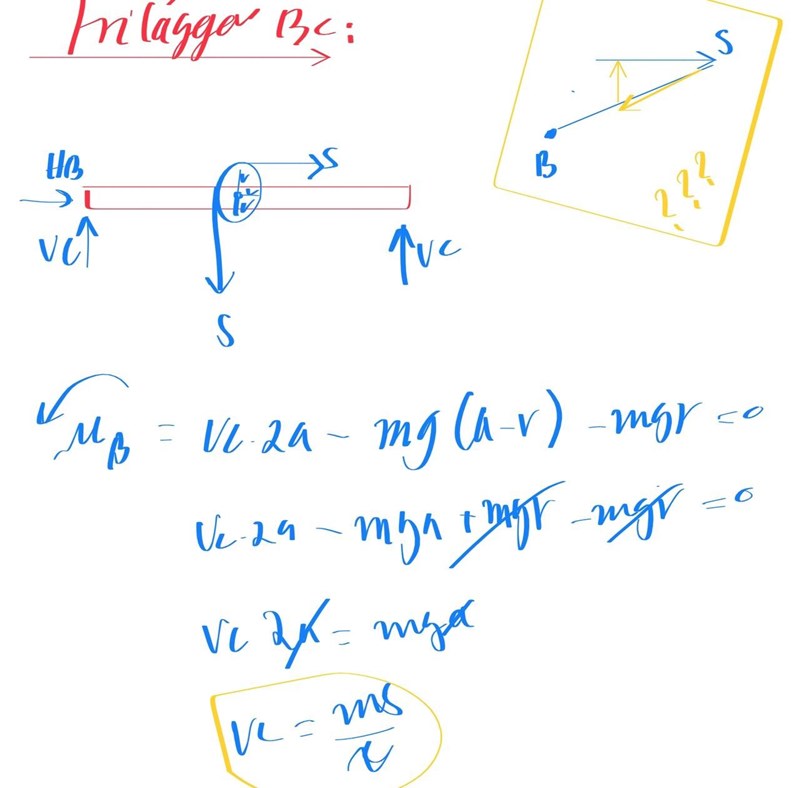 Frilägger BC:
S
B
???
HB
S
r
r
VC
VC
S
MB = VC·2a - mg(a-r) - mgr = 0
VC·2a - mga + mgr - mgr = 0
VC 2a = mga
VC = mg/2